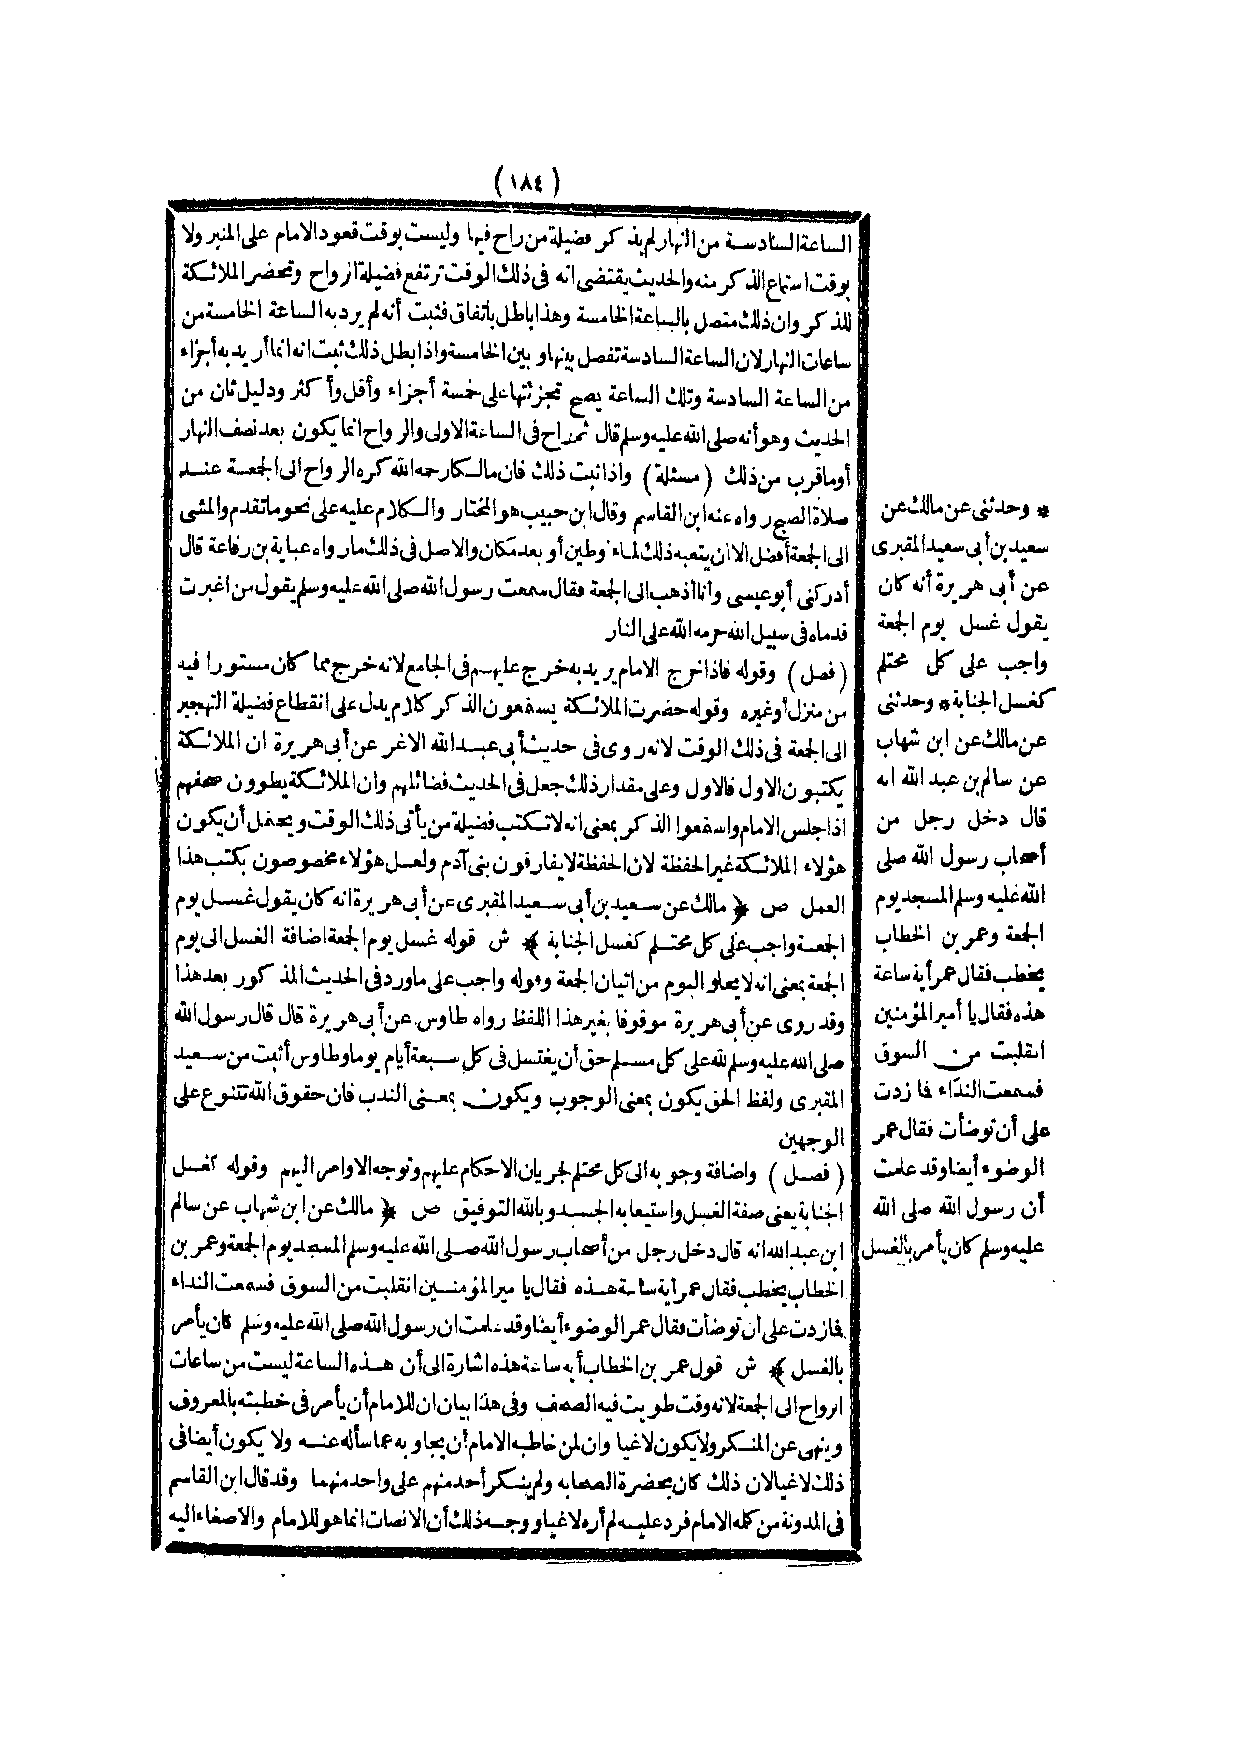 (١٨٤)
الساعة السادسة من النهار لم يذكر فضيلة من راح فيها وليست بوقت قعود الامام على المنبر ولا
بوقت استماع الذكر منه والحديث يقتضى انه فى ذلك الوقت ترتفع فضيلة الرواح وتحضر الملائكة
للذكر وان ذلك متصل بالساعة الخامسة وهذا باطل باتفاق فثبت أنه لم يرد به الساعة الخامسة من
ساعات النهار لان الساعة السادسة تفصل بينها وبين الخامسة واذا بطل ذلك ثبت انه انما أريد به أجزاء
من الساعة السادسة وتلك الساعة يصح تجزئتها على خمسة أجزاء وأقل وأكثر ودليل ثان من
الحديث وهو أنه صلى الله عليه وسلم قال ثم راح فى الساعة الاولى والرواح انما يكون بعد نصف النهار
أو ما قرب من ذلك (مسئلة) واذا ثبت ذلك فان مالكا رحمه الله كره الرواح الى الجمعة عند
صلاة الصبح رواه عنه ابن القاسم وقال ابن حبيب هو المختار والكلام عليه على نحو ما تقدم والمشى
الى الجمعة أفضل الا ان يتعبه ذلك لماء وطين أو بعد مكان والاصل فى ذلك ما رواه عباية بن رفاعة قال
أدركنى أبو عيسى وأنا أذهب الى الجمعة فقال سمعت رسول الله صلى الله عليه وسلم يقول من اغبرت
قدماه فى سبيل الله حرمه الله على النار
(فصل) وقوله فاذا خرج الامام يريد به خرج عليهم فى الجامع لانه خرج مما كان مستورا فيه
من منزل أو غيره وقوله حضرت الملائكة يستمعون الذكر كلام يدل على انقطاع فضيلة التهجير
الى الجمعة فى ذلك الوقت لانه روى فى حديث أبى عبد الله الاغر عن أبى هريرة ان الملائكة
يكتبون الاول فالاول وعلى مقدار ذلك جعل فى الحديث فضائلهم وان الملائكة يطوون صحفهم
اذا جلس الامام واستمعوا الذكر بمعنى انه لا تكتب فضيلة من يأتى ذلك الوقت ويحتمل أن يكون
هؤلاء الملائكة غير الحفظة لان الحفظة لا يفارقون بنى آدم ولعل هؤلاء مخصوصون بكتب هذا
العمل ص ﴿ مالك عن سعيد بن أبى سعيد المقبرى عن أبى هريرة انه كان يقول غسل يوم
الجمعة واجب على كل محتلم كغسل الجنابة ﴾ ش قوله غسل يوم الجمعة اضافة الغسل الى يوم
الجمعة بمعنى انه لا يخلو اليوم من اتيان الجمعة وقوله واجب على ما ورد فى الحديث المذكور بعد هذا
وقد روى عن أبى هريرة موقوفا بغير هذا اللفظ رواه طاوس عن أبى هريرة قال قال رسول الله
صلى الله عليه وسلم لله على كل مسلم حق أن يغتسل فى كل سبعة أيام يوما وطاوس أثبت من سعيد
المقبرى ولفظ الحق يكون بمعنى الوجوب ويكون بمعنى الندب فان حقوق الله تتنوع على
الوجهين
(فصل) واضافة وجوبه الى كل محتلم لجريان الاحكام عليهم وتوجه الاوامر اليهم وقوله كغسل
الجنابة يعنى صفة الغسل واستيعابه الجسد وبالله التوفيق ص ﴿ مالك عن ابن شهاب عن سالم
ابن عبد الله انه قال دخل رجل من أصحاب رسول الله صلى الله عليه وسلم المسجد يوم الجمعة وعمر بن
الخطاب يخطب فقال عمر أية ساعة هذه فقال يا أمير المؤمنين انقلبت من السوق فسمعت النداء
فازدت على أن توضأت فقال عمر الوضوء أيضا وقد علمت ان رسول الله صلى الله عليه وسلم كان يأمر
بالغسل ﴾ ش قول عمر بن الخطاب أية ساعة هذه اشارة الى أن هذه الساعة ليست من ساعات
الرواح الى الجمعة لانه وقت طويت فيه الصحف وفى هذا بيان ان للامام أن يأمر فى خطبته بالمعروف
وينهى عن المنكر ولا يكون لاغيا وان لمن خاطبه الامام أن يجاوبه عما سأله عنه ولا يكون أيضا فى
ذلك لاغيا لان ذلك كان بحضرة الصحابة ولم ينكر أحد منهم على واحد منهما وقد قال ابن القاسم
فى المدونة من كلمه الامام فرد عليه لم أره لاغيا ووجه ذلك أن الانصات انما هو للامام والاصغاء اليه
* وحدثنى عن مالك عن
سعيد بن أبى سعيد المقبرى
عن أبى هريرة أنه كان
يقول غسل يوم الجمعة
واجب على كل محتلم
كغسل الجنابة * وحدثنى
عن مالك عن ابن شهاب
عن سالم بن عبد الله انه
قال دخل رجل من
أصحاب رسول الله صلى
الله عليه وسلم المسجد يوم
الجمعة وعمر بن الخطاب
يخطب فقال عمر أية ساعة
هذه فقال يا أمير المؤمنين
انقلبت من السوق
فسمعت النداء فا زدت
على أن توضأت فقال عمر
الوضوء أيضا وقد علمت
أن رسول الله صلى الله
عليه وسلم كان يأمر بالغسل